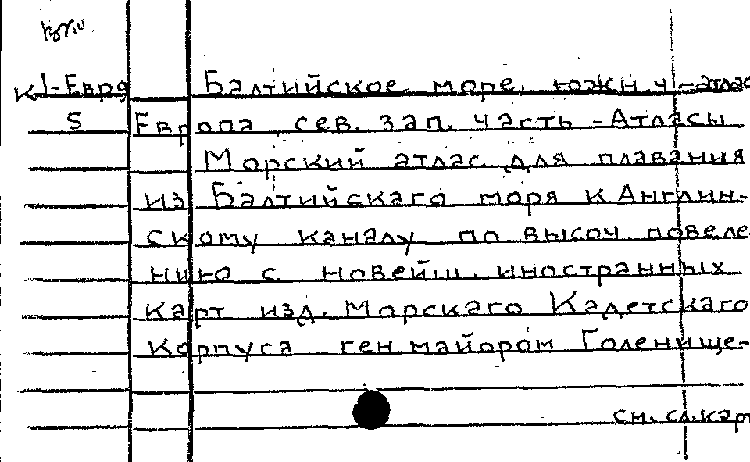 К1-Евро Балтийское море, южн. ч. - атлас
5 Европа, сев. зап. часть - Атласы
Морский атлас для плавания
из Балтийскаго моря к Англин-
скому каналу по высоч. повеле
нию с новейш. иностранных
карт изд. Морскаго Кадетскаго
Корпуса ген. майором Голенище-
см. сл. кар